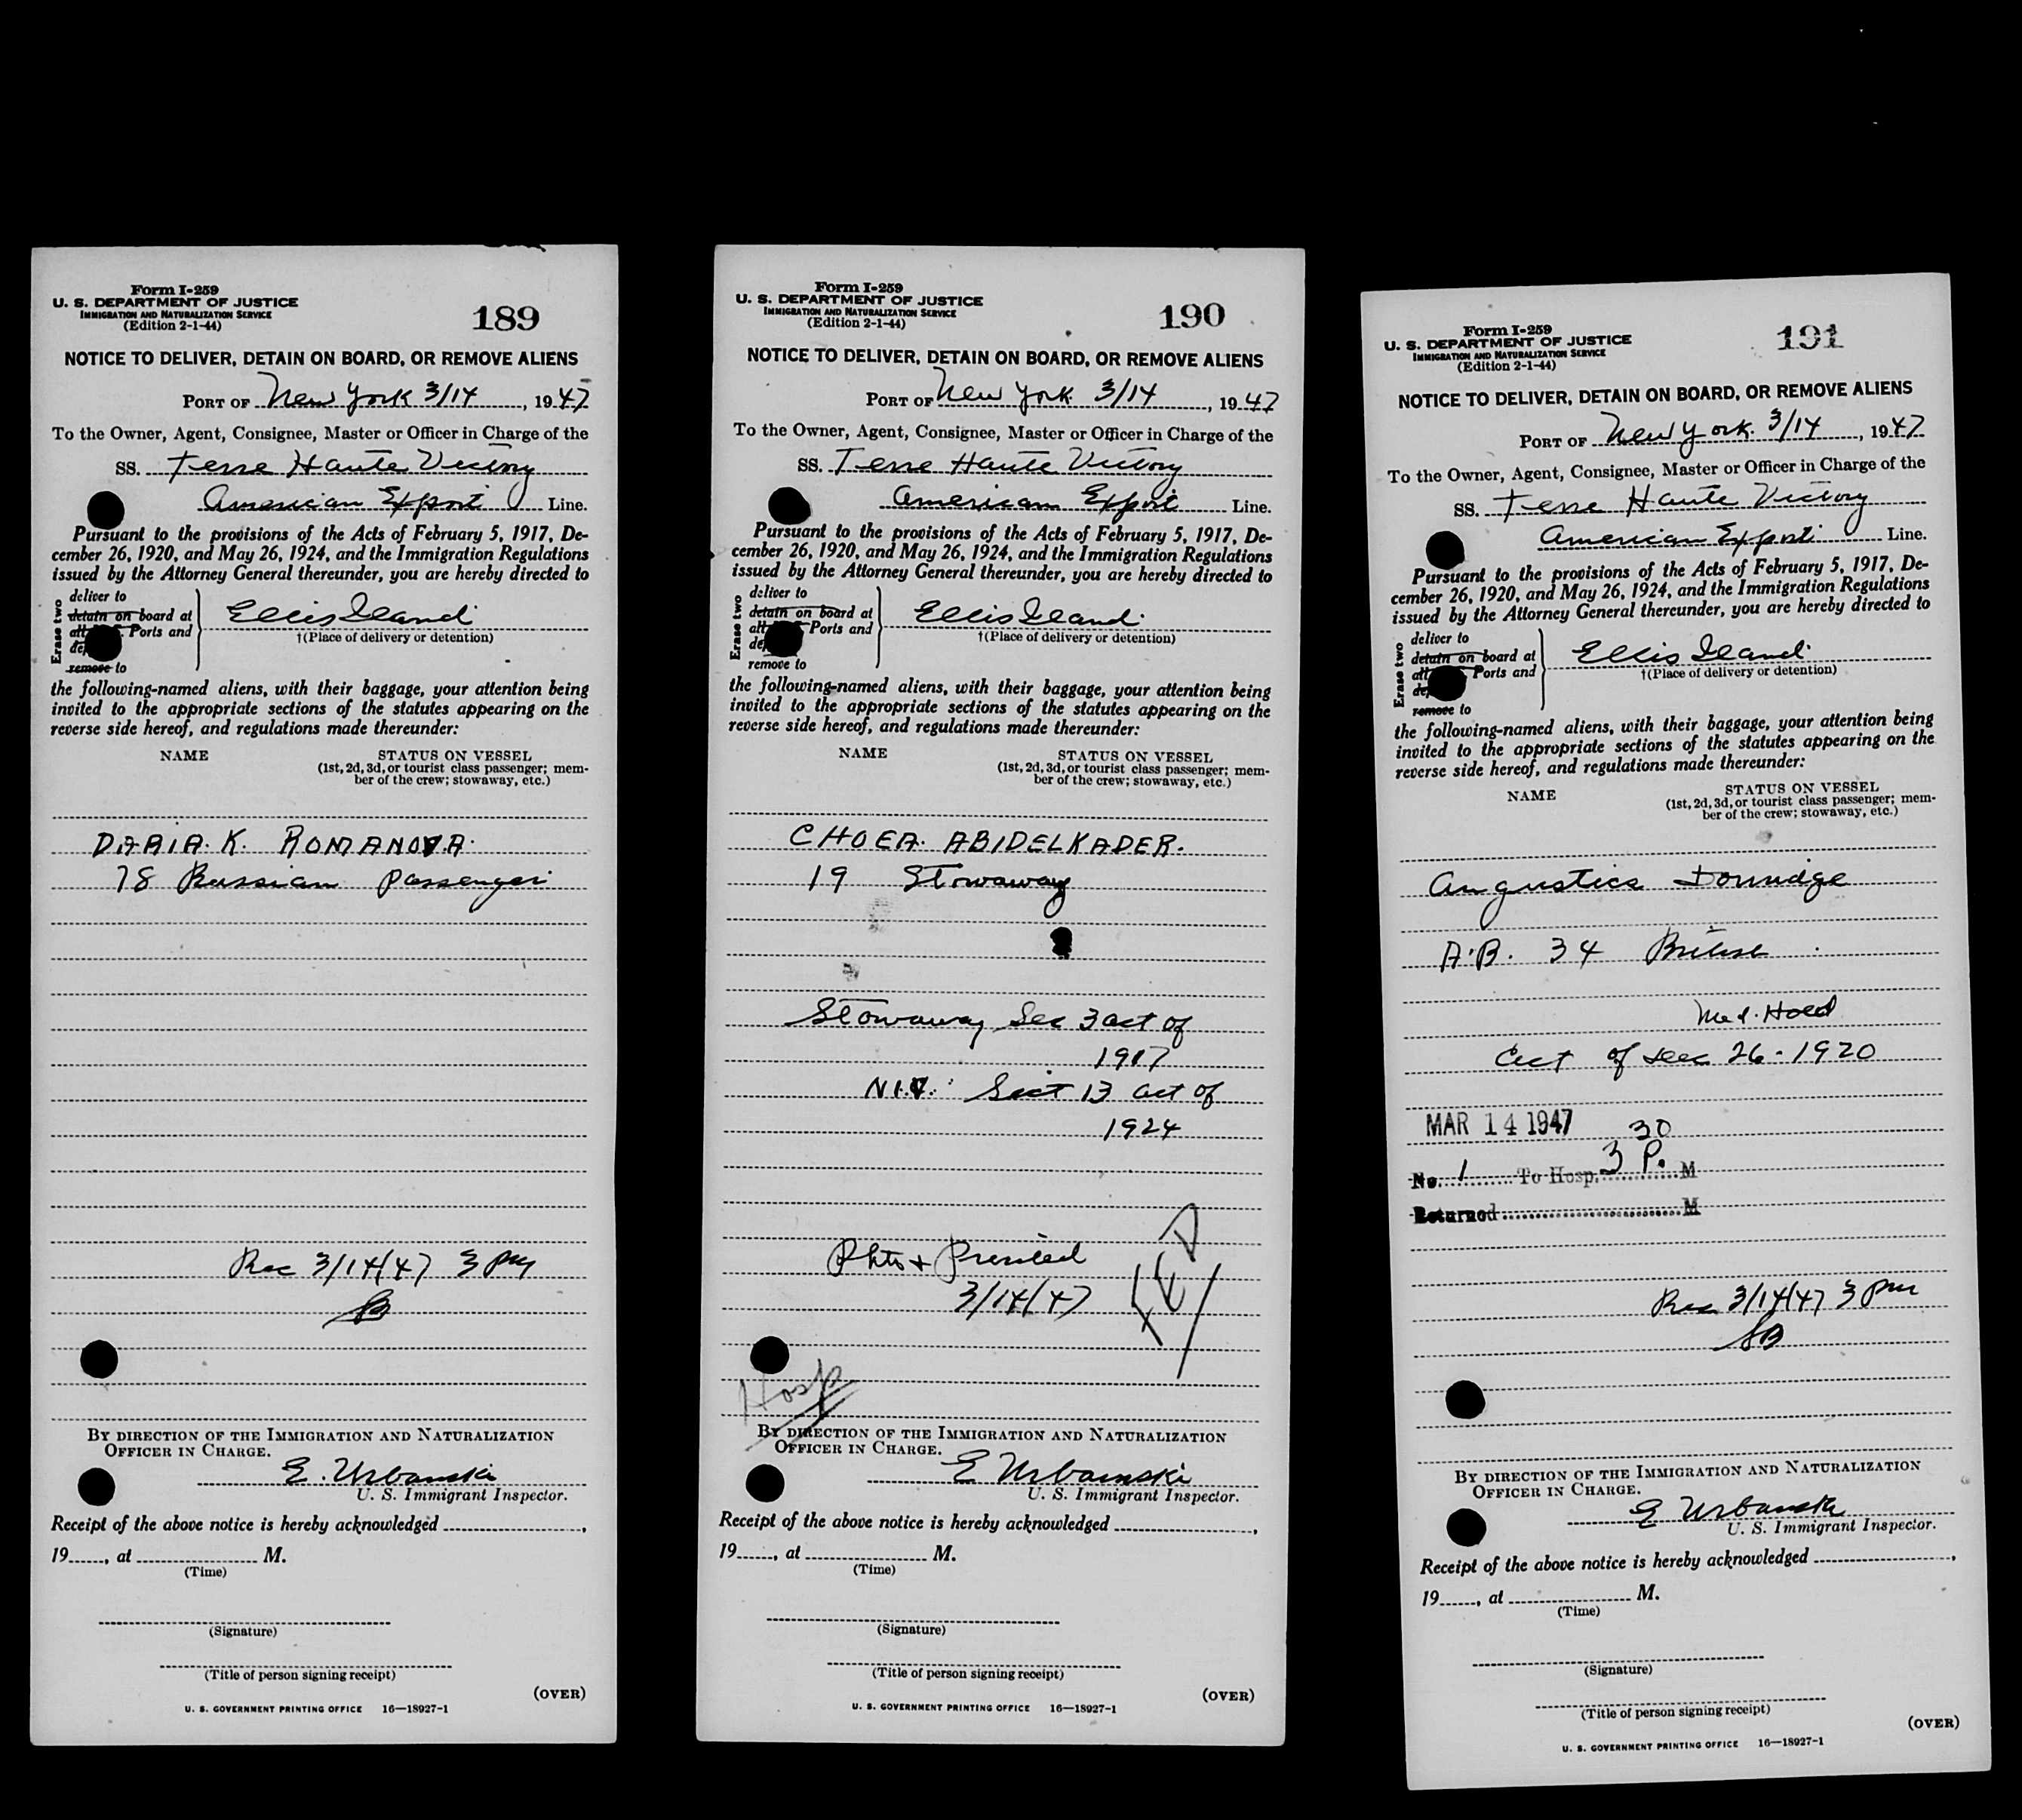 Form I-259
U. S. DEPARTMENT OF JUSTICE
IMMIGRATION AND NATURALIZATION SERVICE
(Edition 2-1-44)
189
NOTICE TO DELIVER, DETAIN ON BOARD, OR REMOVE ALIENS
PORT OF New York 3/14, 1947
To the Owner, Agent, Consignee, Master or Officer in Charge of the
SS. Terre Haute Victory
American Export Line.
Pursuant to the provisions of the Acts of February 5, 1917, De-
cember 26, 1920, and May 26, 1924, and the Immigration Regulations
issued by the Attorney General thereunder, you are hereby directed to
Erase two
deliver to
detain on board at
all Ports and
remove to
Ellis Island
†(Place of delivery or detention)
the following-named aliens, with their baggage, your attention being
invited to the appropriate sections of the statutes appearing on the
reverse side hereof, and regulations made thereunder:
NAME STATUS ON VESSEL
(1st, 2d, 3d, or tourist class passenger; mem-
ber of the crew; stowaway, etc.)
DARIA. K. ROMANOVA.
78 Russian passenger
Rec 3/14/47 3 PM
BY DIRECTION OF THE IMMIGRATION AND NATURALIZATION
OFFICER IN CHARGE.
E. Urbanski
U. S. Immigrant Inspector.
Receipt of the above notice is hereby acknowledged ,
19 , at M.
(Time)
(Signature)
(Title of person signing receipt)
(OVER)
U. S. GOVERNMENT PRINTING OFFICE 16—18927-1
Form I-259
U. S. DEPARTMENT OF JUSTICE
IMMIGRATION AND NATURALIZATION SERVICE
(Edition 2-1-44)
190
NOTICE TO DELIVER, DETAIN ON BOARD, OR REMOVE ALIENS
PORT OF New York 3/14, 1947
To the Owner, Agent, Consignee, Master or Officer in Charge of the
SS. Terre Haute Victory
American Export Line.
Pursuant to the provisions of the Acts of February 5, 1917, De-
cember 26, 1920, and May 26, 1924, and the Immigration Regulations
issued by the Attorney General thereunder, you are hereby directed to
Erase two
deliver to
detain on board at
all Ports and
remove to
Ellis Island
†(Place of delivery or detention)
the following-named aliens, with their baggage, your attention being
invited to the appropriate sections of the statutes appearing on the
reverse side hereof, and regulations made thereunder:
NAME STATUS ON VESSEL
(1st, 2d, 3d, or tourist class passenger; mem-
ber of the crew; stowaway, etc.)
CHOEA. ABIDELKADER.
19 Stowaway
Stowaway Sec 3 act of
1917
N.I.V. Sect 13 act of
1924
Phto + Printed
3/14/47
Hosp
BY DIRECTION OF THE IMMIGRATION AND NATURALIZATION
OFFICER IN CHARGE.
E Urbanski
U. S. Immigrant Inspector.
Receipt of the above notice is hereby acknowledged ,
19 , at M.
(Time)
(Signature)
(Title of person signing receipt)
(OVER)
U. S. GOVERNMENT PRINTING OFFICE 16—18927-1
Form I-259
U. S. DEPARTMENT OF JUSTICE
IMMIGRATION AND NATURALIZATION SERVICE
(Edition 2-1-44)
191
NOTICE TO DELIVER, DETAIN ON BOARD, OR REMOVE ALIENS
PORT OF New York. 3/14, 1947
To the Owner, Agent, Consignee, Master or Officer in Charge of the
SS. Terre Haute Victory
American Export Line.
Pursuant to the provisions of the Acts of February 5, 1917, De-
cember 26, 1920, and May 26, 1924, and the Immigration Regulations
issued by the Attorney General thereunder, you are hereby directed to
Erase two
deliver to
detain on board at
all Ports and
remove to
Ellis Island
†(Place of delivery or detention)
the following-named aliens, with their baggage, your attention being
invited to the appropriate sections of the statutes appearing on the
reverse side hereof, and regulations made thereunder:
NAME STATUS ON VESSEL
(1st, 2d, 3d, or tourist class passenger; mem-
ber of the crew; stowaway, etc.)
A.B. 34 British
Med. Hold
Act of Dec 26-1920
MAR 14 1947
No. 1 To Hosp. 3 30 P. M
Returned M
Rec 3/14/47 3 PM
SB
BY DIRECTION OF THE IMMIGRATION AND NATURALIZATION
OFFICER IN CHARGE.
E Urbanski
U. S. Immigrant Inspector.
Receipt of the above notice is hereby acknowledged ,
19 , at M.
(Time)
(Signature)
(Title of person signing receipt)
(OVER)
U. S. GOVERNMENT PRINTING OFFICE 16—18927-1